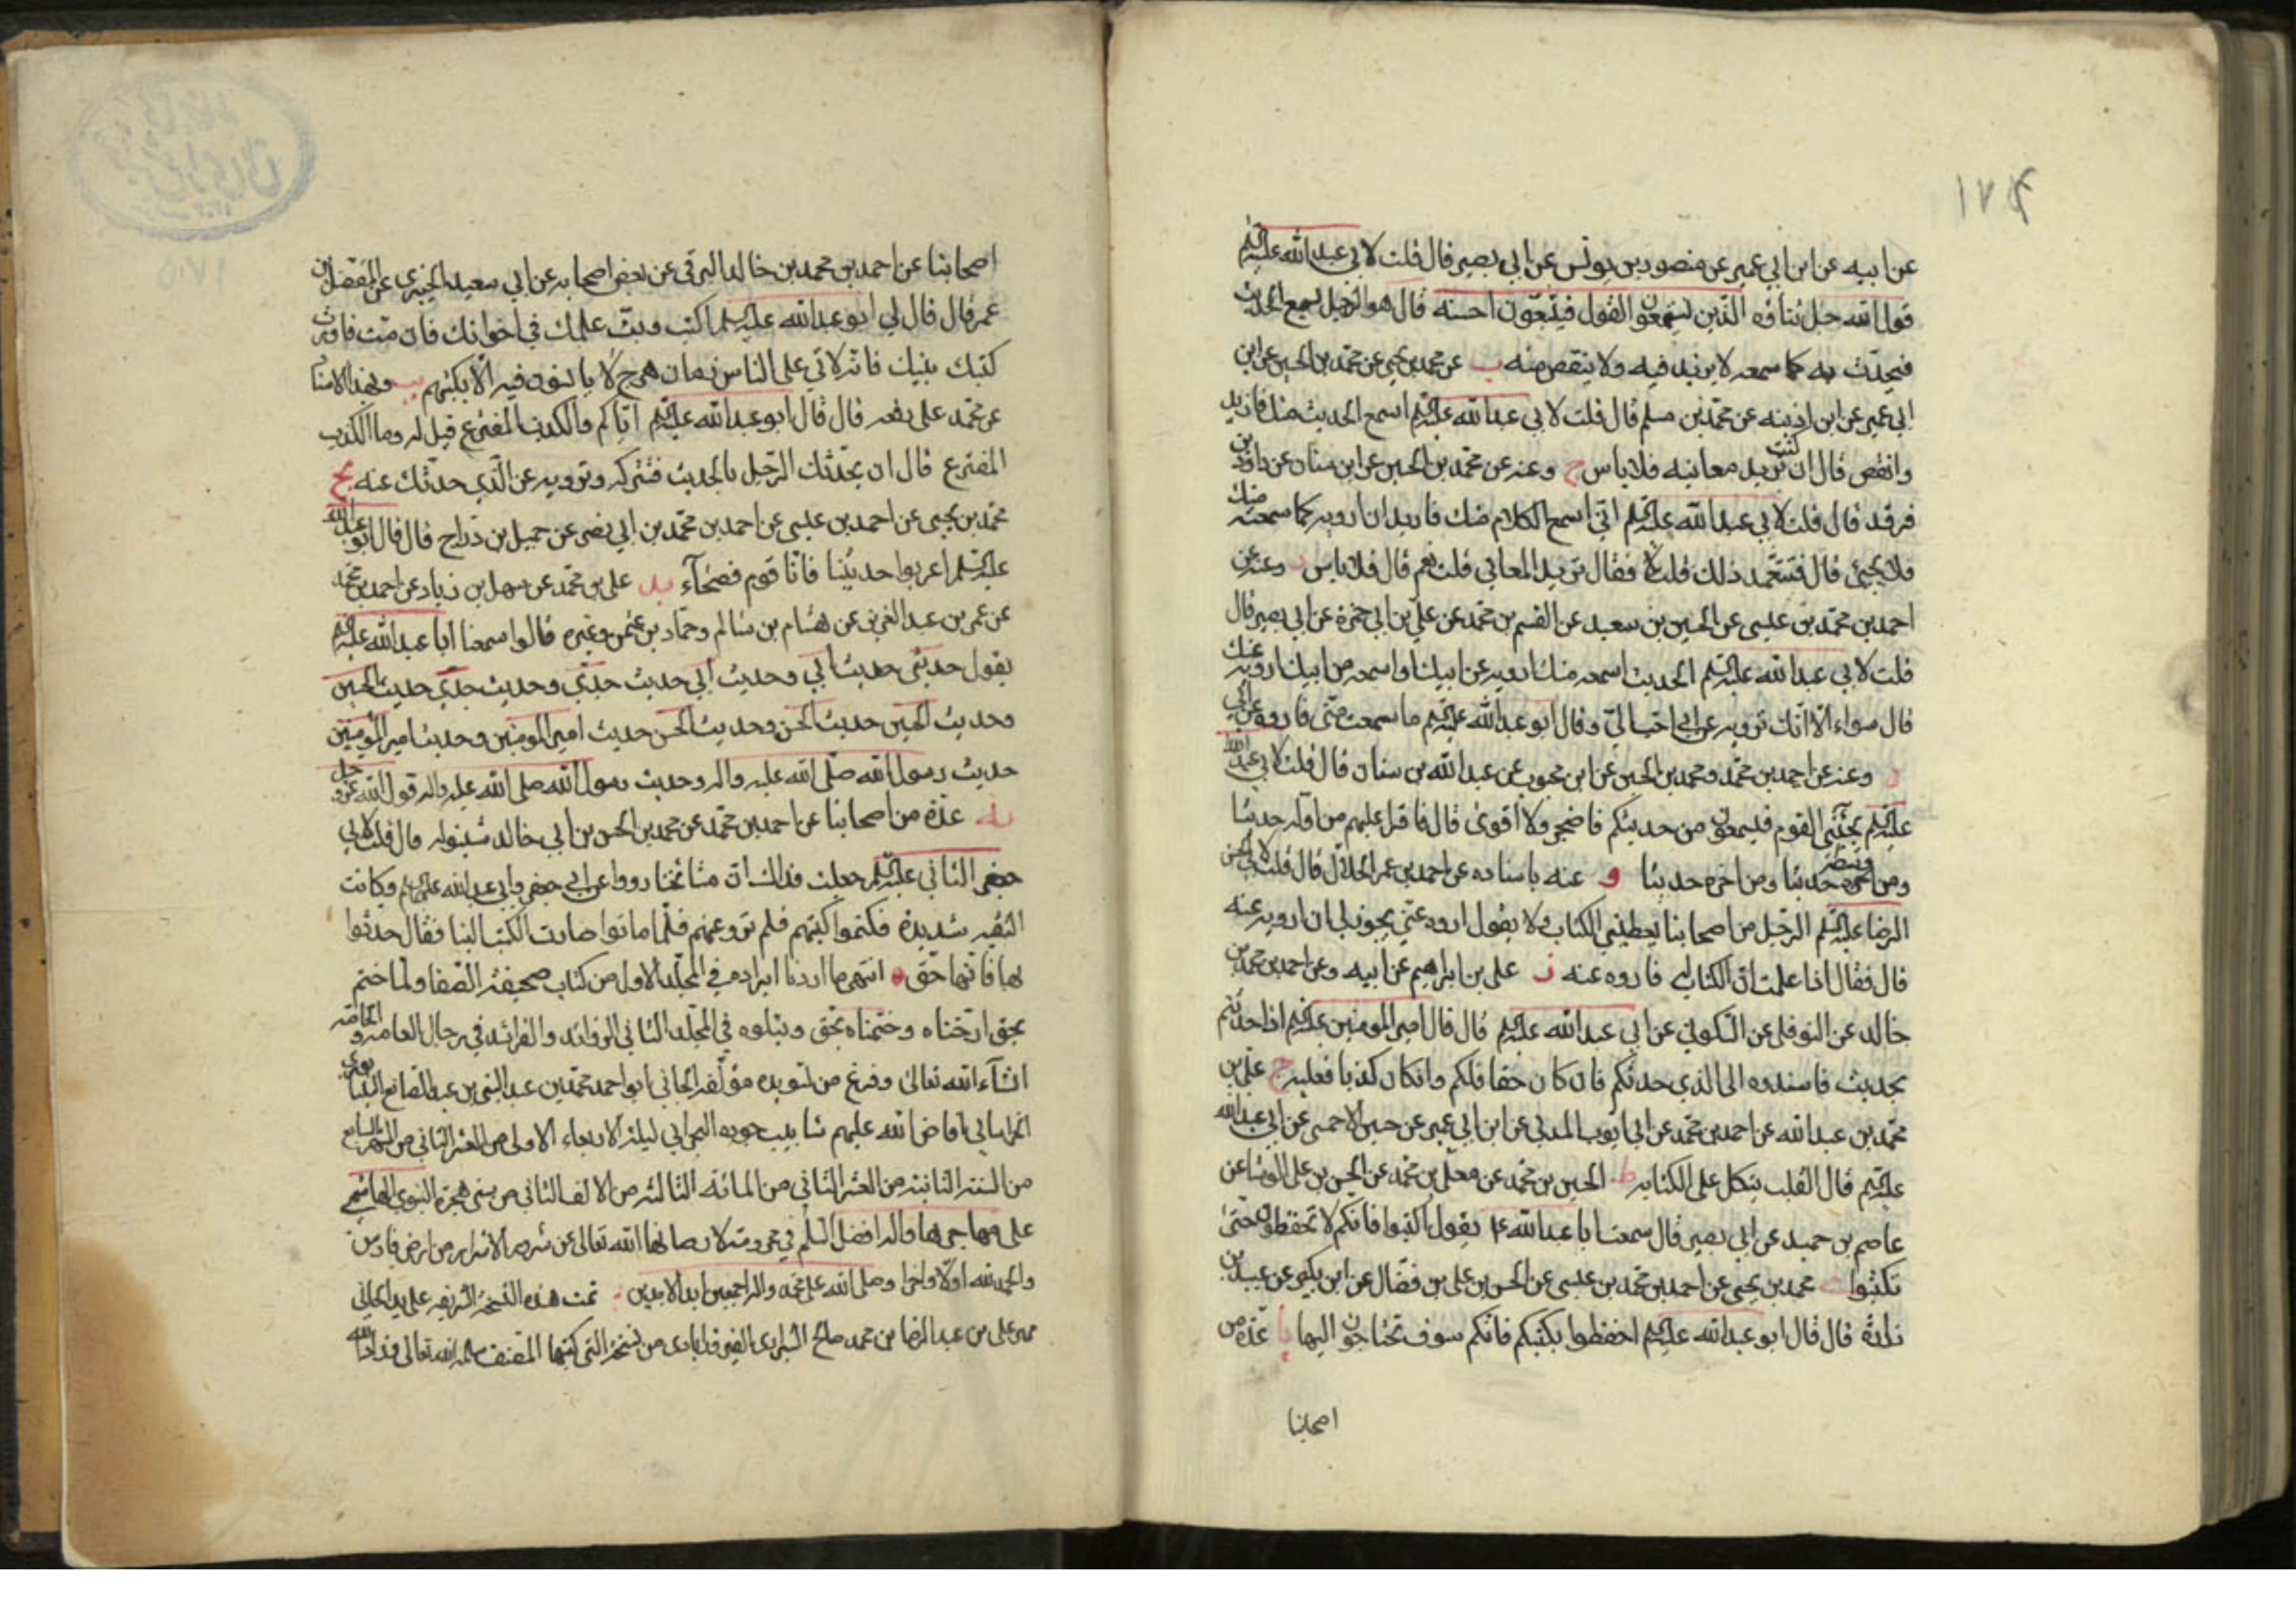 ١٧٤
عن ابيه عن ابن ابي عمير عن منصور بن يونس عن ابي بصير قال قلت لابي عبدالله عليه السلم
قول الله جل ثناؤه الذين يستمعون القول فيتبعون احسنه قال هو الرجل يسمع الحديث
فيحدث به كما سمعه لا يزيد فيه ولا ينقص منه ب عن محمد بن يحيى عن محمد بن الحسين عن ابن
ابي عمير عن ابن اذينه عن محمد بن مسلم قال قلت لابي عبدالله عليه السلم اسمع الحديث منك فازيد
وانقص قال ان كنت تريد معانيه فلا باس ج وعنه عن محمد بن الحسين عن ابن سنان عن داود بن
فرقد قال قلت لابي عبدالله عليه السلم اني اسمع الكلام منك فاريد ان ارويه كما سمعته منك
فلا يجيئ قال فتتعمد ذلك قلت لا فقال تريد المعاني قلت نعم قال فلا باس د وعنه عن
احمد بن محمد بن عيسى عن الحسين بن سعيد عن القسم بن محمد عن علي بن ابي حمزة عن ابي بصير قال
قلت لابي عبدالله عليه السلم الحديث اسمعه منك ارويه عن ابيك او اسمعه من ابيك ارويه عنك
قال سواء الا انك ترويه عن ابي احب الي وقال ابو عبدالله عليه السلم ما سمعت مني فاروه عن ابي
ه وعنه عن احمد بن محمد ومحمد بن الحسين عن ابن محبوب عن عبدالله بن سنان قال قلت لابي عبدالله
عليه السلم يجيئني القوم فيسمعون من حديثكم فاضجر ولا اقوى قال فاقرا عليهم من اوله حديثا
ومن وسطه حديثا ومن اخره حديثا و عنه باسناده عن احمد بن عمر الحلال قال قلت لابي الحسن
الرضا عليه السلم الرجل من اصحابنا يعطيني الكتاب ولا يقول اروه عني يجوز لي ان ارويه عنه
قال فقال اذا علمت ان الكتاب له فاروه عنه ز علي بن ابراهيم عن ابيه وعن احمد بن محمد بن
خالد عن النوفلي عن السكوني عن ابي عبدالله عليه السلم قال قال امير المومنين عليه السلم اذا حدثتم
بحديث فاسندوه الى الذي حدثكم فان كان حقا فلكم وان كان كذبا فعليه ح علي بن
محمد بن عبدالله عن احمد بن محمد عن ابي ايوب المدني عن ابن ابي عمير عن حسين الاحمسي عن ابي عبدالله
عليه السلم قال القلب يتكل على الكتابه ط الحسين بن محمد عن معلى بن محمد عن الحسن بن علي الوشا عن
عاصم بن حميد عن ابي بصير قال سمعت ابا عبدالله ع يقول اكتبوا فانكم لا تحفظون حتى
تكتبوا ي محمد بن يحيى عن احمد بن محمد بن عيسى عن الحسن بن علي بن فضال عن ابن بكير عن عبيد بن
زرارة قال قال ابو عبدالله عليه السلم احفظوا بكتبكم فانكم سوف تحتاجون اليها يا عدة من
اصحابنا
اصحابنا عن احمد بن محمد بن خالد البرقي عن بعض اصحابه عن ابي سعيد الخيبري عن المفضل بن
عمر قال قال لي ابو عبدالله عليه السلم اكتب وبث علمك في اخوانك فان مت فاورث
كتبك بنيك فانه لاتي على الناس زمان هرج لا يانسون فيه الا بكتبهم يب وبهذا الاسناد
عن محمد علي رفعه قال قال ابو عبدالله عليه السلم اياكم والكذب المفترع قيل له وما الكذب
المفترع قال ان يحدثك الرجل بالحديث فتتركه وترويه عن الذي حدثك عنه يج
محمد بن يحيى عن احمد بن عيسى عن احمد بن محمد بن ابي نصر عن جميل بن دراج قال قال ابو عبدالله
عليه السلم اعربوا حديثنا فانا قوم فصحاء يد علي بن محمد عن سهل بن زياد عن احمد بن محمد
عن عمر بن عبد العزيز عن هشام بن سالم وحماد بن عثمن وغيره قالوا سمعنا ابا عبدالله عليه السلم
يقول حديثي حديث ابي وحديث ابي حديث جدي وحديث جدي حديث الحسين
وحديث الحسين حديث الحسن وحديث الحسن حديث امير المومنين وحديث امير المومنين
حديث رسول الله صلى الله عليه واله وحديث رسول الله صلى الله عليه واله قول الله عز وجل
يه عدة من اصحابنا عن احمد بن محمد عن محمد بن الحسن بن ابي خالد شينوله قال قلت لابي
جعفر الثاني عليه السلم جعلت فداك ان مشائخنا رووا عن ابي جعفر وابي عبدالله عليهما السلم وكانت
التقيه شديدة فكتموا كتبهم فلم ترو عنهم فلما ماتوا صارت الكتب الينا فقال حدثوا
بها فانها حق انتهى ما اردنا ايراده في المجلد الاول من كتاب صحيفة الصفا ولما ختم
بحق ارخناه وختمناه بحق ويتلوه في المجلد الثاني الزوائد والفرائد في رجال العامه والخاصه
انشاء الله تعالى وفرغ من تسويده مؤلفه الجاني ابو احمد محمد بن عبد النبي بن عبد الصانع النيسابوري
الخراساني افاض الله عليهم شابيب جوده السجابي ليلة الاربعاء الاولى من العشر الثاني من الشهر السابع
من السنة الثانية من العشر الثاني من المائه الثالثة من الالف الثاني من سني هجرة النبوي الهاشمي
على مهاجرها واله افضل السلم في صانها الله تعالى عن شرور الاشرار من ارض فارس
والحمد لله اولا واخرا وصلى الله على محمد واله اجمعين ابد الابدين تمت هذه النسخة الشريفه على يد الجاني
علي بن عبد الرضا بن محمد صالح من نسخة التي كتبها المصنف سلمه الله تعالى